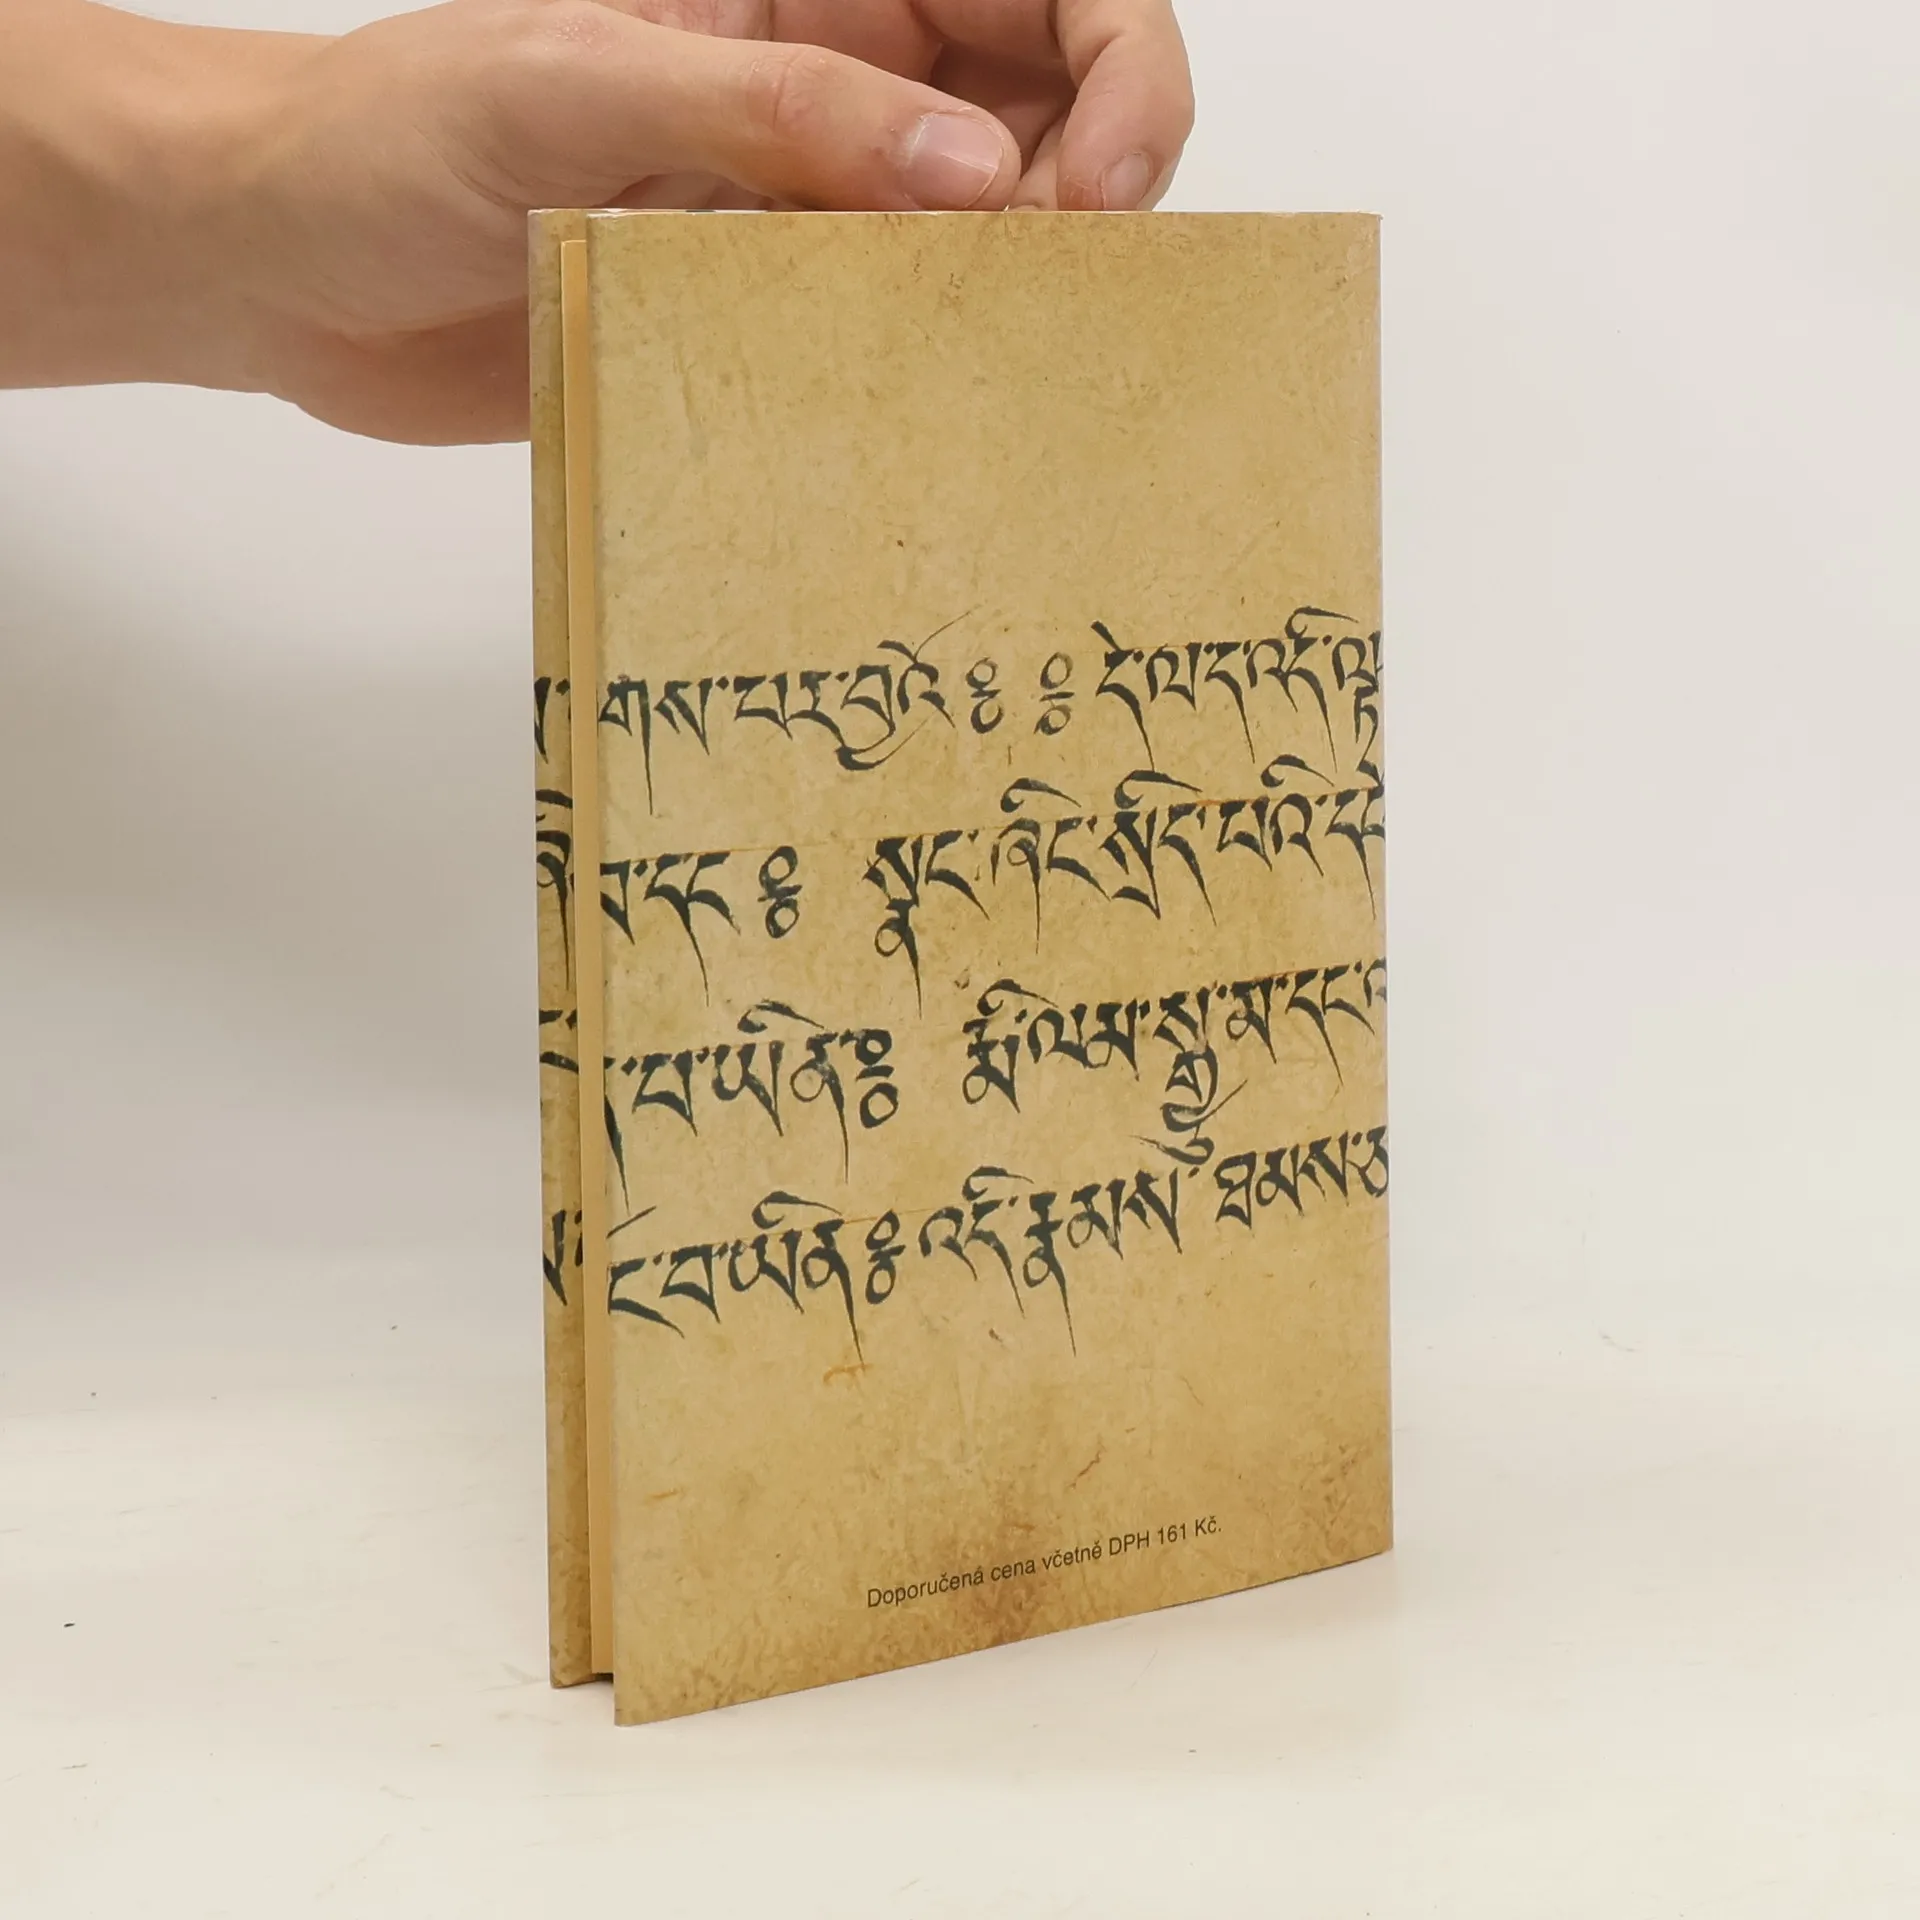 གས་པར་བྱའོ༔ ༔ དེ་ལ་ད་འདི་ལྟ
བ་དང༔ སྣང་ཞིང་སྲིད་པའི་
པ་ཡིན༔ རྨི་ལམ་སྒྱུ་མ་དང་
ང་བ་ཡིན༔ འདི་རྣམས་ཐམས་ཅ
Doporučená cena včetně DPH 161 Kč.